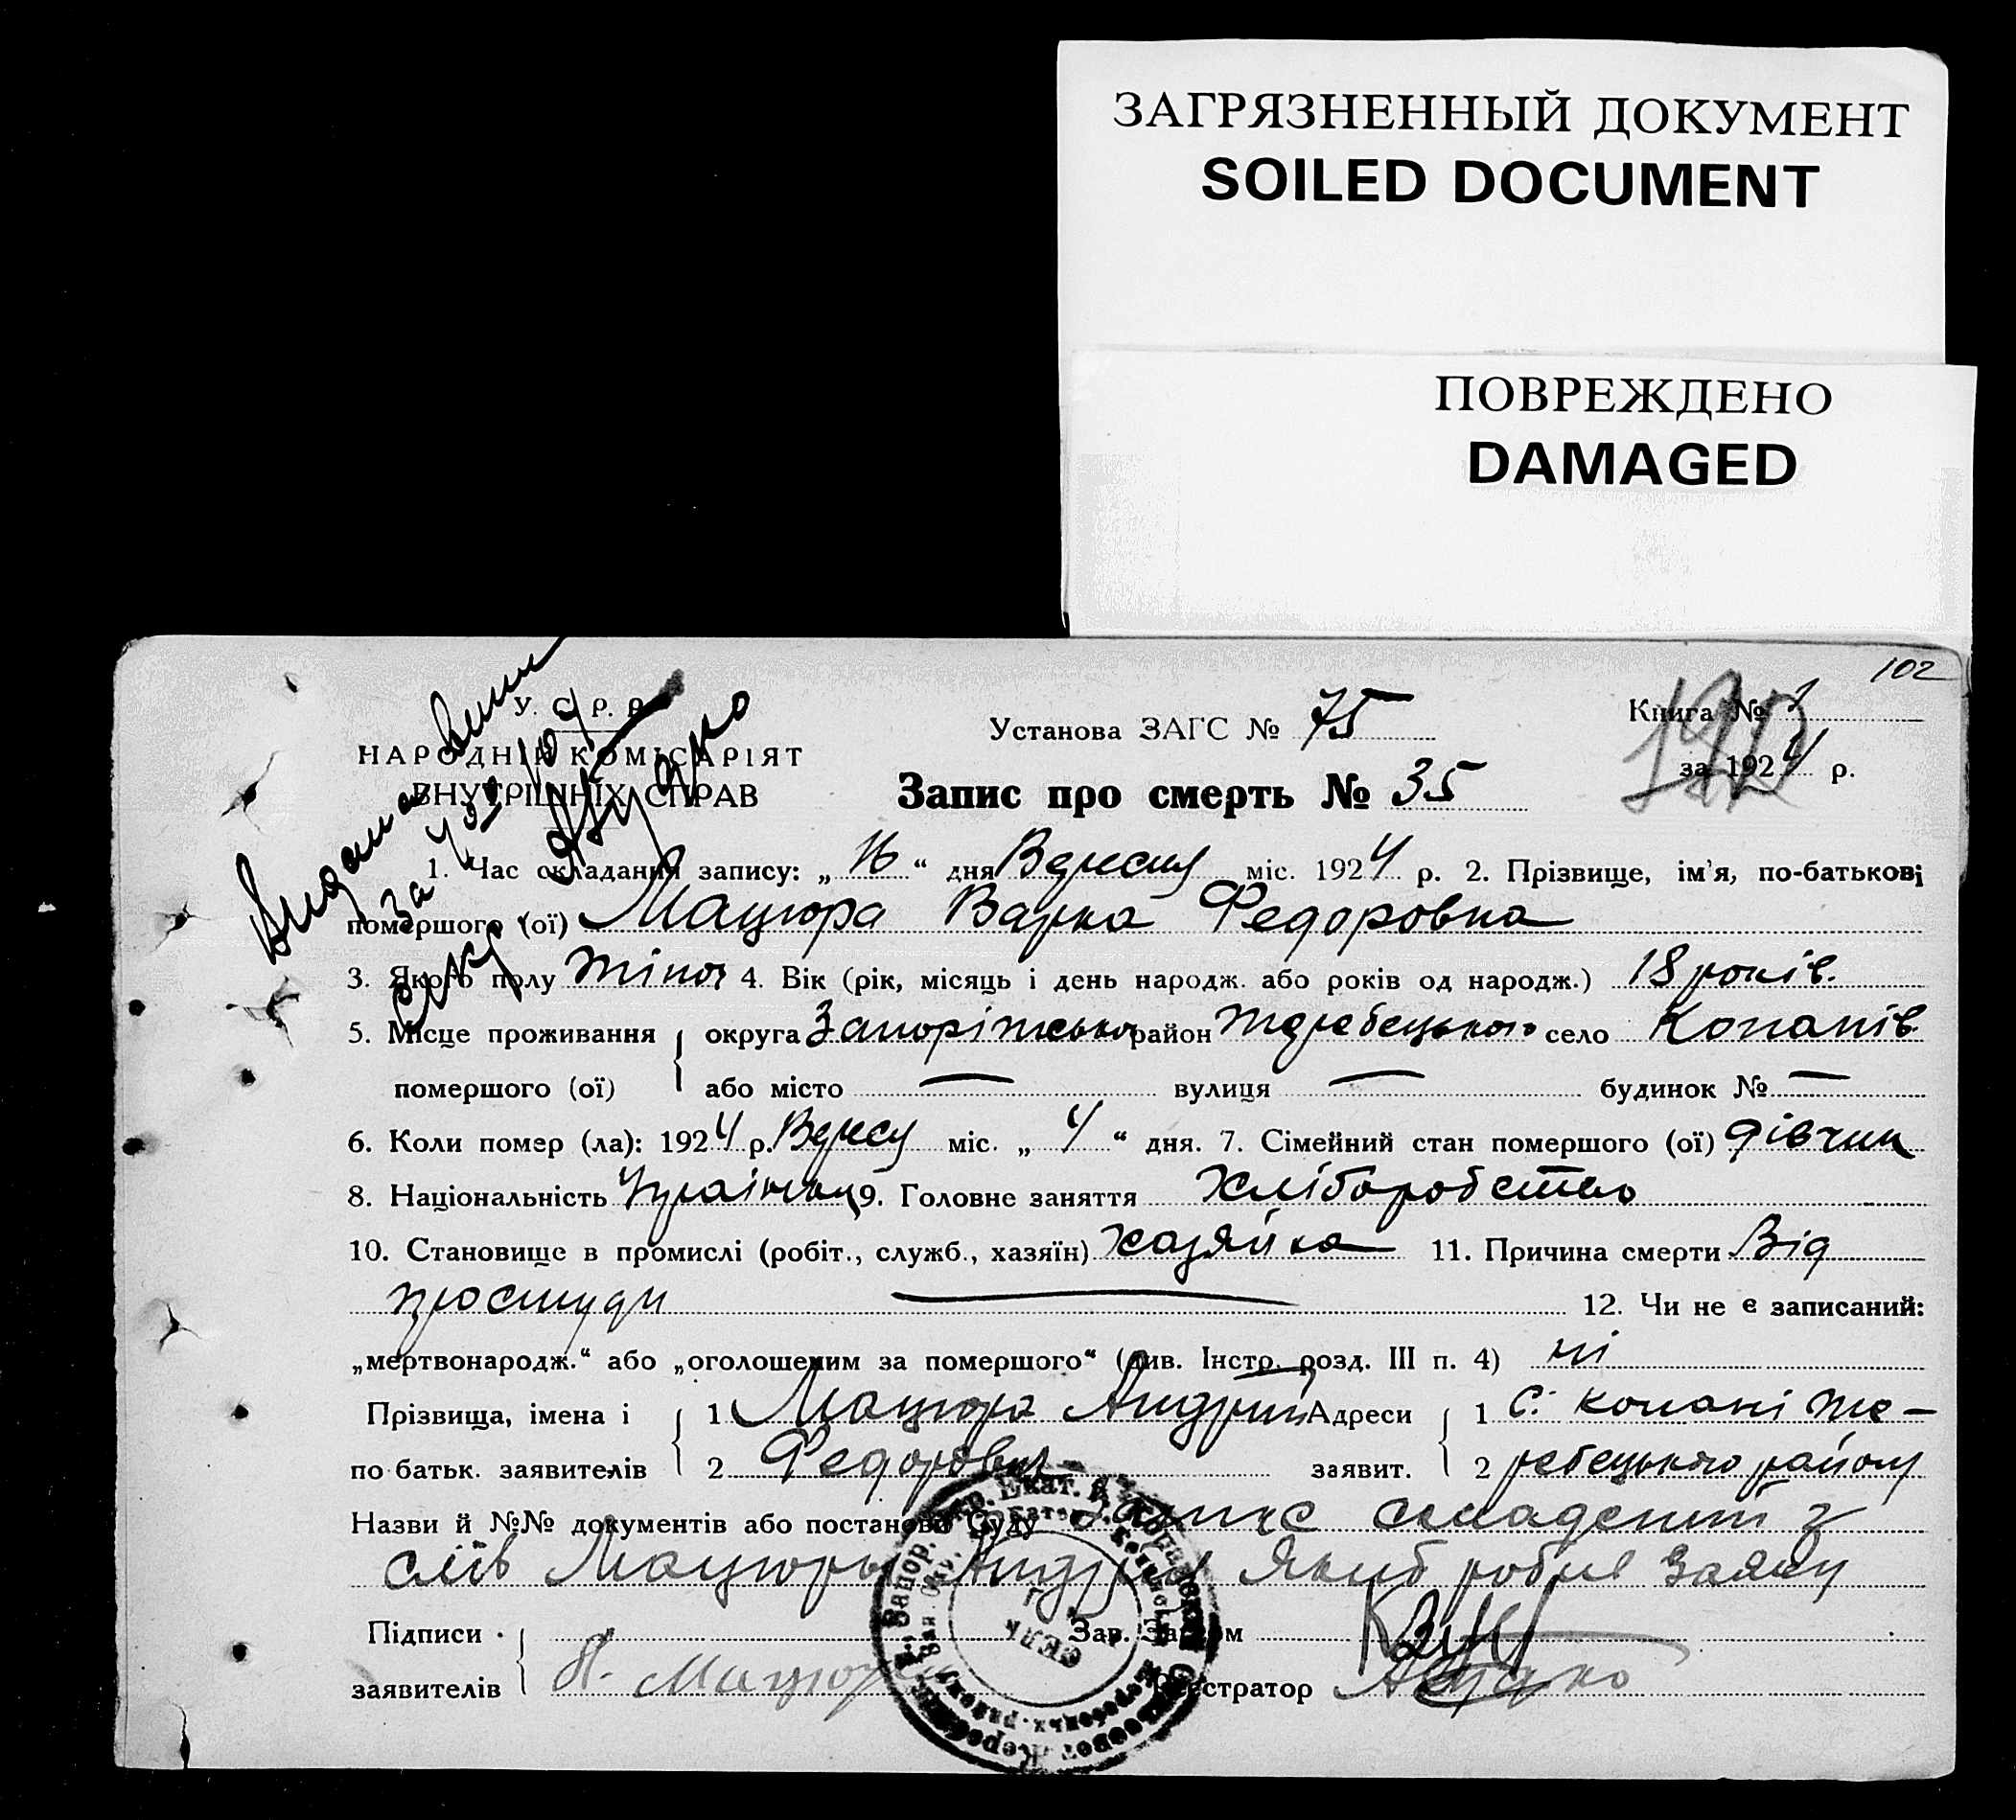 ЗАГРЯЗНЕННЫЙ ДОКУМЕНТ
SOILED DOCUMENT
ПОВРЕЖДЕНО
DAMAGED
102
У. С. Р. Р.
НАРОДНІЙ КОМІСАРІЯТ
ВНУТРІШНІХ СПРАВ
Установа ЗАГС № 75
Книга №
за 1924 р.
Запис про смерть № 35
1. Час складання запису: „16“ дня Вересня міс. 1924 р. 2. Прізвище, ім'я, по-батькові
помершого (ої) Мацюра Варка Федоровна
3. Якого полу жіноч 4. Вік (рік, місяць і день народж. або років од народж.) 18 років.
5. Місце проживання округа Запоріжської район Жеребецького село Копанів
помершого (ої) або місто — вулиця — будинок № —
6. Коли помер (ла): 1924 р. Вересн міс. „4“ дня. 7. Сімейний стан помершого (ої) дівчин
8. Національність Українка 9. Головне заняття Хліборобство
10. Становище в промислі (робіт., служб., хазяїн) хазяйка 11. Причина смерти Від
простуди 12. Чи не є записаний:
„мертвонародж.“ або „оголошеним за помершого“ (див. Інстр. розд. III п. 4) ні
Прізвища, імена і 1 Мацюра Андрій Адреси 1 с. Копані Же-
по батьк. заявителів 2 Федорович заявит. 2 ребецького району
Назви й №№ документів або постанова Суду Запис складений з
слів Мацюры Андрія Який робив Заяву
Підписи Зав. Загсом
заявителів А. Мацюра Реєстратор